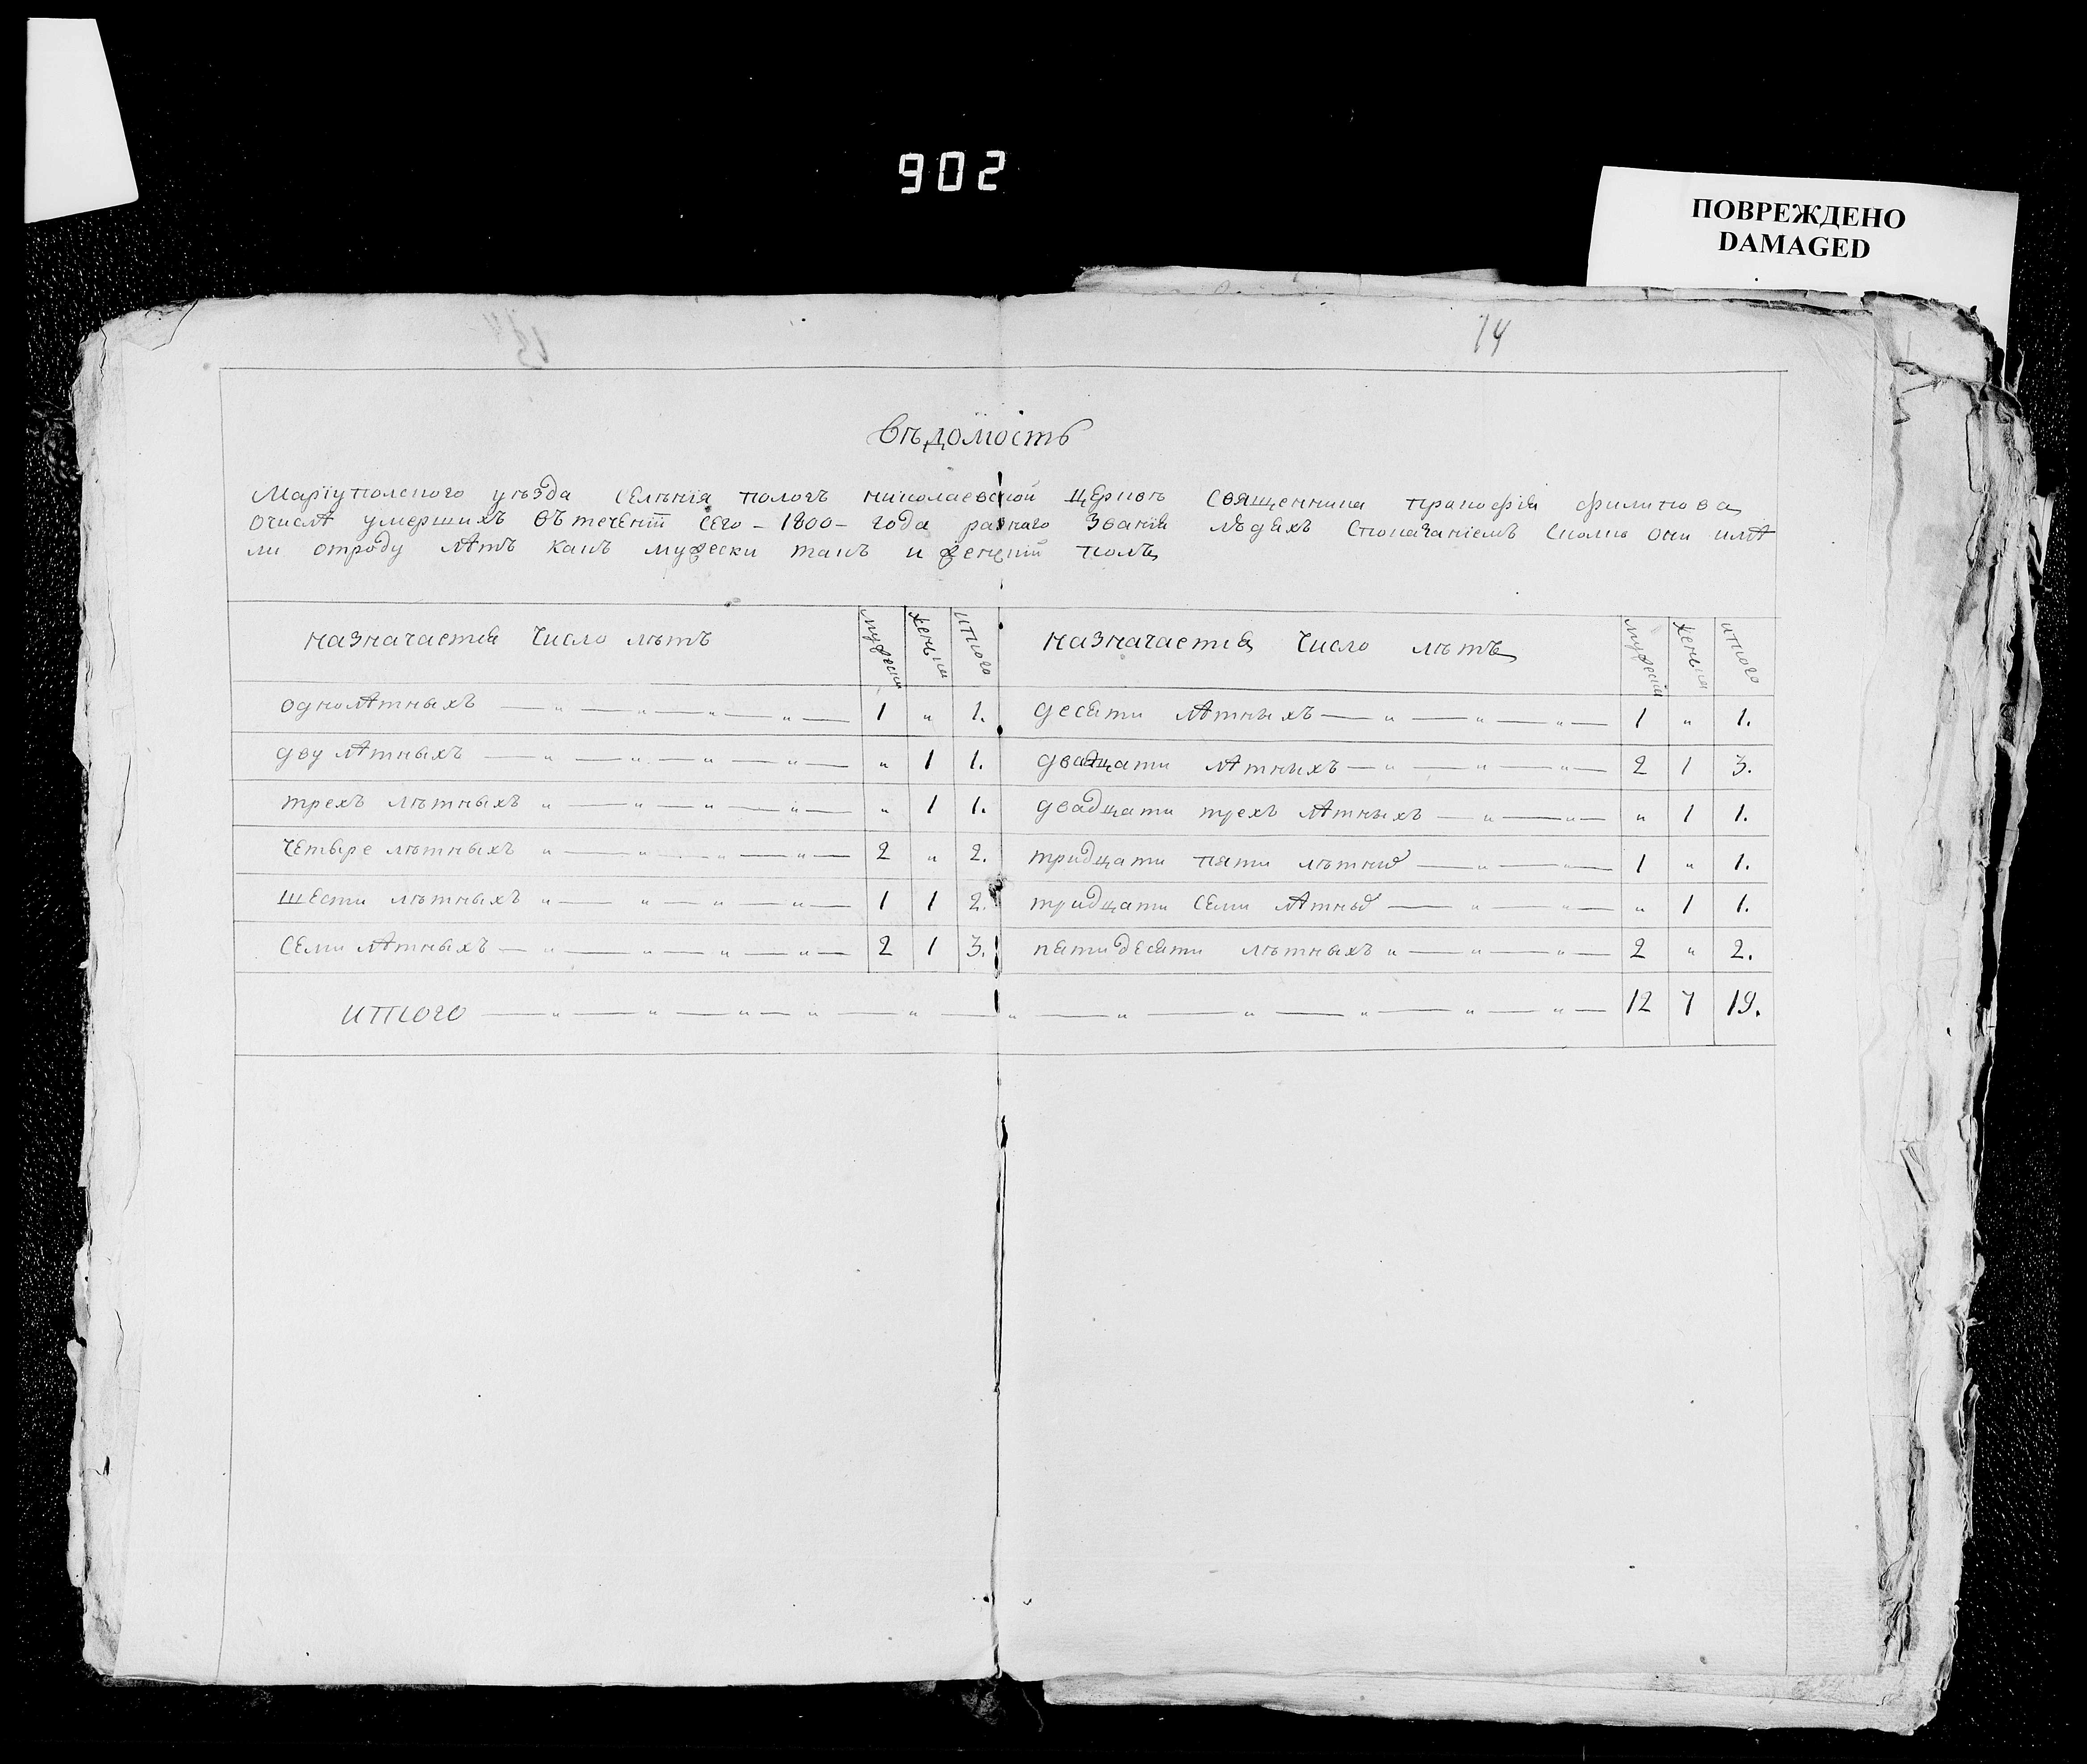 902
ПОВРЕЖДЕНО
DAMAGED
14
вѣдомость
Маріуполского уѣзда селѣнія пологъ николаевской церкви священника прокофія филипова
очислѣ умершихъ втечениі сего - 1800 - года разнаго званія людяхъ спокачаніемъ сколко они имѣ
ли отроду лѣтъ какъ мужески такъ и женскій полъ
назначается число лѣтъ мужески женски итого назначается число лѣтъ мужески женски итого
однолѣтныхъ 1 „ 1. десяти лѣтныхъ 1 „ 1.
дву лѣтныхъ „ 1 1. двадцати лѣтныхъ 2 1 3.
трехъ лѣтныхъ „ 1 1. двадцати трехъ лѣтныхъ „ 1 1.
четыре лѣтныхъ 2 „ 2. тридцати пяти лѣтных 1 „ 1.
шести лѣтныхъ 1 1 2. тридцати семи лѣтных „ 1 1.
семи лѣтныхъ 2 1 3. пятидесяти лѣтныхъ 2 „ 2.
итого 12 7 19.